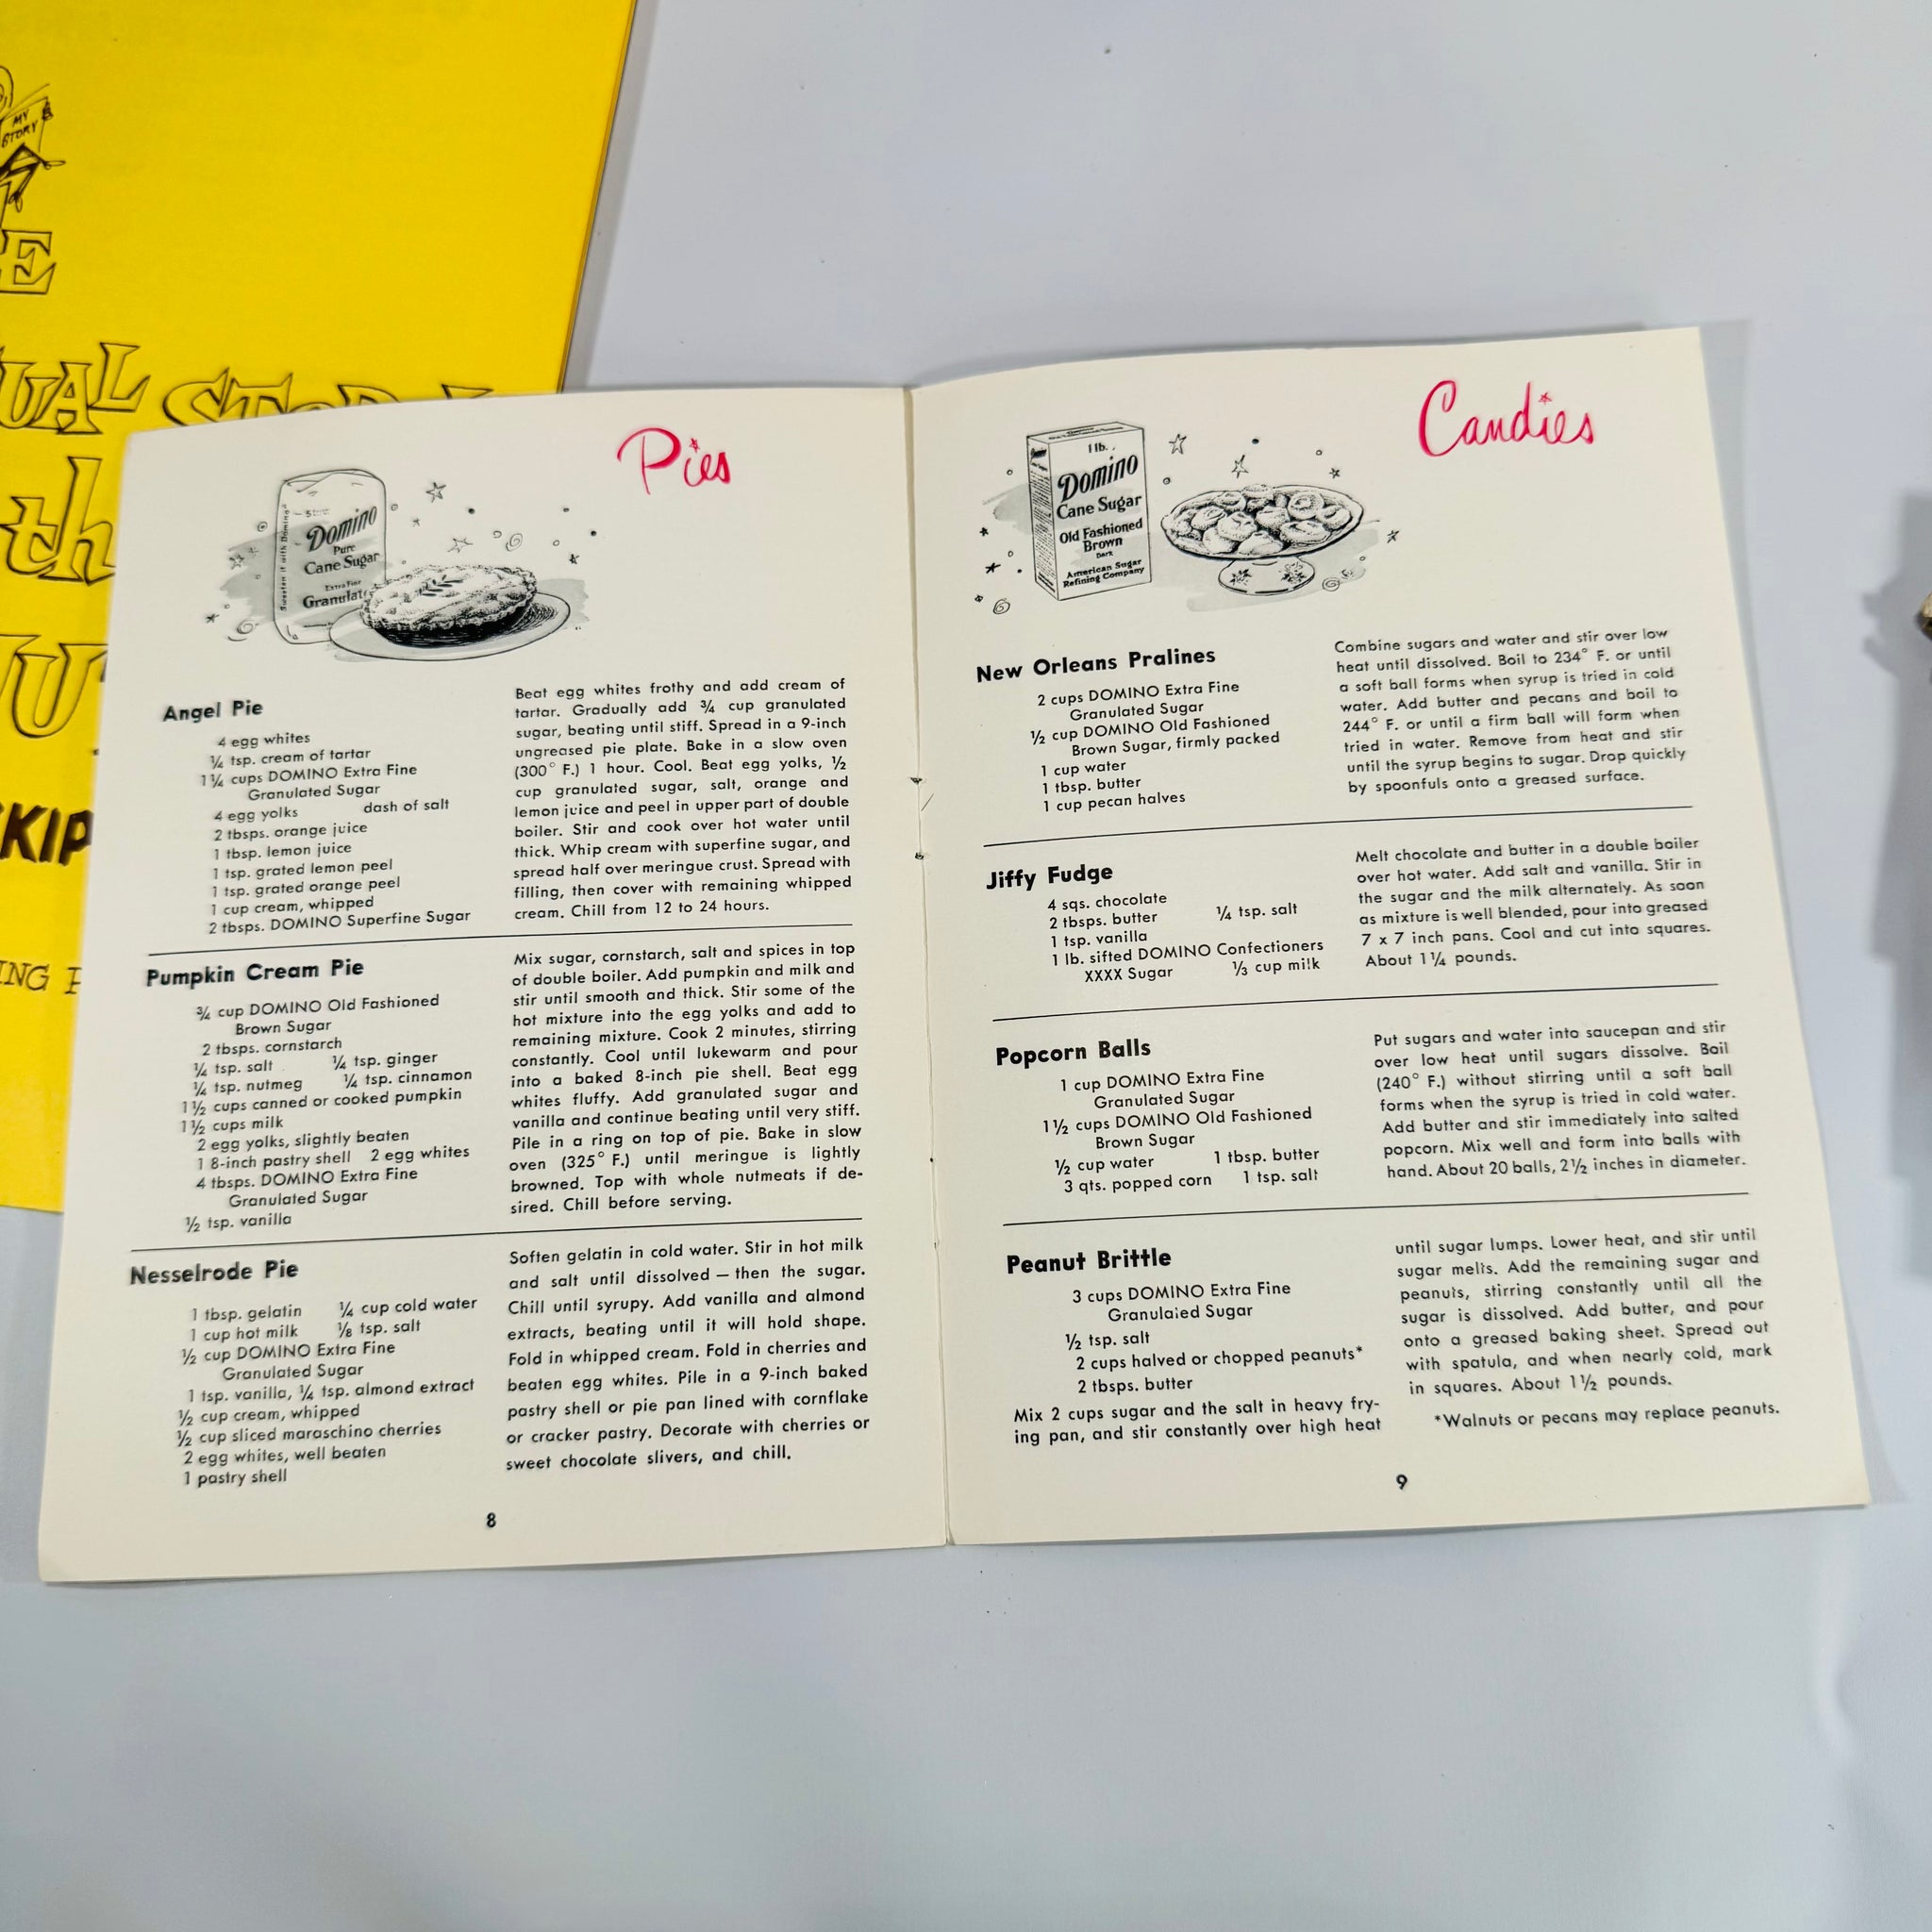 MY
STORY
E
UAL STOR
th
U
KIP
ING
Pies
Domino
Pure
Cane Sugar
Extra Fine
Granulat
Sweeten it with Domino
Angel Pie
4 egg whites
¼ tsp. cream of tartar
1¼ cups DOMINO Extra Fine
Granulated Sugar
4 egg yolks dash of salt
2 tbsps. orange juice
1 tbsp. lemon juice
1 tsp. grated lemon peel
1 tsp. grated orange peel
1 cup cream, whipped
2 tbsps. DOMINO Superfine Sugar
Beat egg whites frothy and add cream of
tartar. Gradually add ¾ cup granulated
sugar, beating until stiff. Spread in a 9-inch
ungreased pie plate. Bake in a slow oven
(300° F.) 1 hour. Cool. Beat egg yolks, ½
cup granulated sugar, salt, orange and
lemon juice and peel in upper part of double
boiler. Stir and cook over hot water until
thick. Whip cream with superfine sugar, and
spread half over meringue crust. Spread with
filling, then cover with remaining whipped
cream. Chill from 12 to 24 hours.
Pumpkin Cream Pie
¾ cup DOMINO Old Fashioned
Brown Sugar
2 tbsps. cornstarch
¼ tsp. salt ¼ tsp. ginger
¼ tsp. nutmeg ¼ tsp. cinnamon
1½ cups canned or cooked pumpkin
1½ cups milk
2 egg yolks, slightly beaten
1 8-inch pastry shell 2 egg whites
4 tbsps. DOMINO Extra Fine
Granulated Sugar
½ tsp. vanilla
Mix sugar, cornstarch, salt and spices in top
of double boiler. Add pumpkin and milk and
stir until smooth and thick. Stir some of the
hot mixture into the egg yolks and add to
remaining mixture. Cook 2 minutes, stirring
constantly. Cool until lukewarm and pour
into a baked 8-inch pie shell. Beat egg
whites fluffy. Add granulated sugar and
vanilla and continue beating until very stiff.
Pile in a ring on top of pie. Bake in slow
oven (325° F.) until meringue is lightly
browned. Top with whole nutmeats if de-
sired. Chill before serving.
Nesselrode Pie
1 tbsp. gelatin ¼ cup cold water
1 cup hot milk ⅛ tsp. salt
½ cup DOMINO Extra Fine
Granulated Sugar
1 tsp. vanilla, ¼ tsp. almond extract
½ cup cream, whipped
½ cup sliced maraschino cherries
2 egg whites, well beaten
1 pastry shell
Soften gelatin in cold water. Stir in hot milk
and salt until dissolved — then the sugar.
Chill until syrupy. Add vanilla and almond
extracts, beating until it will hold shape.
Fold in whipped cream. Fold in cherries and
beaten egg whites. Pile in a 9-inch baked
pastry shell or pie pan lined with cornflake
or cracker pastry. Decorate with cherries or
sweet chocolate slivers, and chill.
8
Candies
1 lb.
Domino
Cane Sugar
Old Fashioned
Brown
Dark
American Sugar
Refining Company
New Orleans Pralines
2 cups DOMINO Extra Fine
Granulated Sugar
½ cup DOMINO Old Fashioned
Brown Sugar, firmly packed
1 cup water
1 tbsp. butter
1 cup pecan halves
Combine sugars and water and stir over low
heat until dissolved. Boil to 234° F. or until
a soft ball forms when syrup is tried in cold
water. Add butter and pecans and boil to
244° F. or until a firm ball will form when
tried in water. Remove from heat and stir
until the syrup begins to sugar. Drop quickly
by spoonfuls onto a greased surface.
Jiffy Fudge
4 sqs. chocolate
2 tbsps. butter ¼ tsp. salt
1 tsp. vanilla
1 lb. sifted DOMINO Confectioners
XXXX Sugar ⅓ cup milk
Melt chocolate and butter in a double boiler
over hot water. Add salt and vanilla. Stir in
the sugar and the milk alternately. As soon
as mixture is well blended, pour into greased
7 x 7 inch pans. Cool and cut into squares.
About 1¼ pounds.
Popcorn Balls
1 cup DOMINO Extra Fine
Granulated Sugar
1½ cups DOMINO Old Fashioned
Brown Sugar
½ cup water 1 tbsp. butter
3 qts. popped corn 1 tsp. salt
Put sugars and water into saucepan and stir
over low heat until sugars dissolve. Boil
(240° F.) without stirring until a soft ball
forms when the syrup is tried in cold water.
Add butter and stir immediately into salted
popcorn. Mix well and form into balls with
hand. About 20 balls, 2½ inches in diameter.
Peanut Brittle
3 cups DOMINO Extra Fine
Granulated Sugar
½ tsp. salt
2 cups halved or chopped peanuts*
2 tbsps. butter
Mix 2 cups sugar and the salt in heavy fry-
ing pan, and stir constantly over high heat
until sugar lumps. Lower heat, and stir until
sugar melts. Add the remaining sugar and
peanuts, stirring constantly until all the
sugar is dissolved. Add butter, and pour
onto a greased baking sheet. Spread out
with spatula, and when nearly cold, mark
in squares. About 1½ pounds.
*Walnuts or pecans may replace peanuts.
9